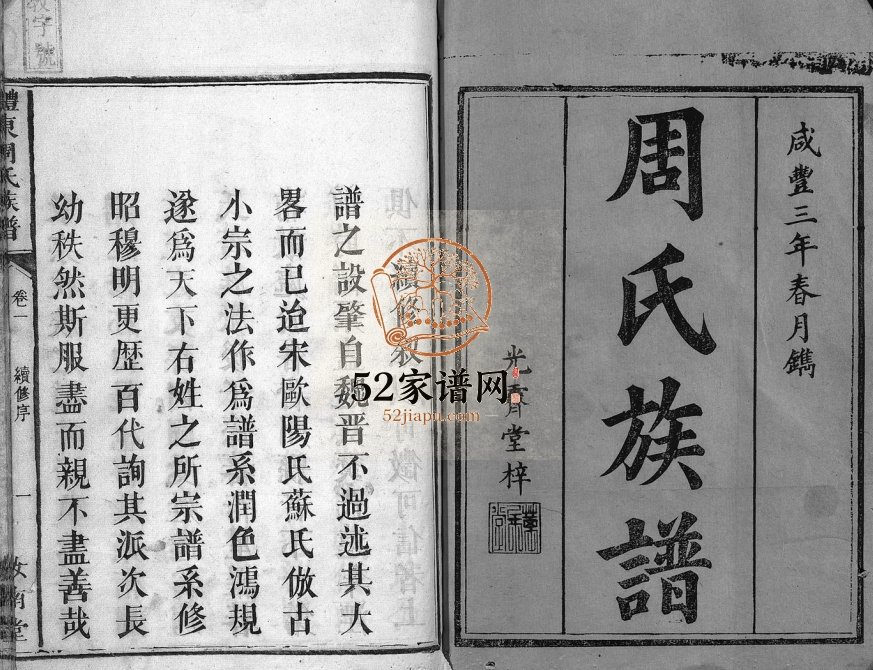 咸豐三年春月鐫
周氏族譜
光霽堂梓
譜之設肇自魏晉不過述其大
畧而已迨宋歐陽氏蘇氏倣古
小宗之法作爲譜系潤色鴻規
遂爲天下右姓之所宗譜系修
昭穆明更歷百代詢其派次長
幼秩然斯服盡而親不盡善哉
醴東周氏族譜
卷一
續修序
一
汝南堂
字號
52家谱网
52jiapu.com